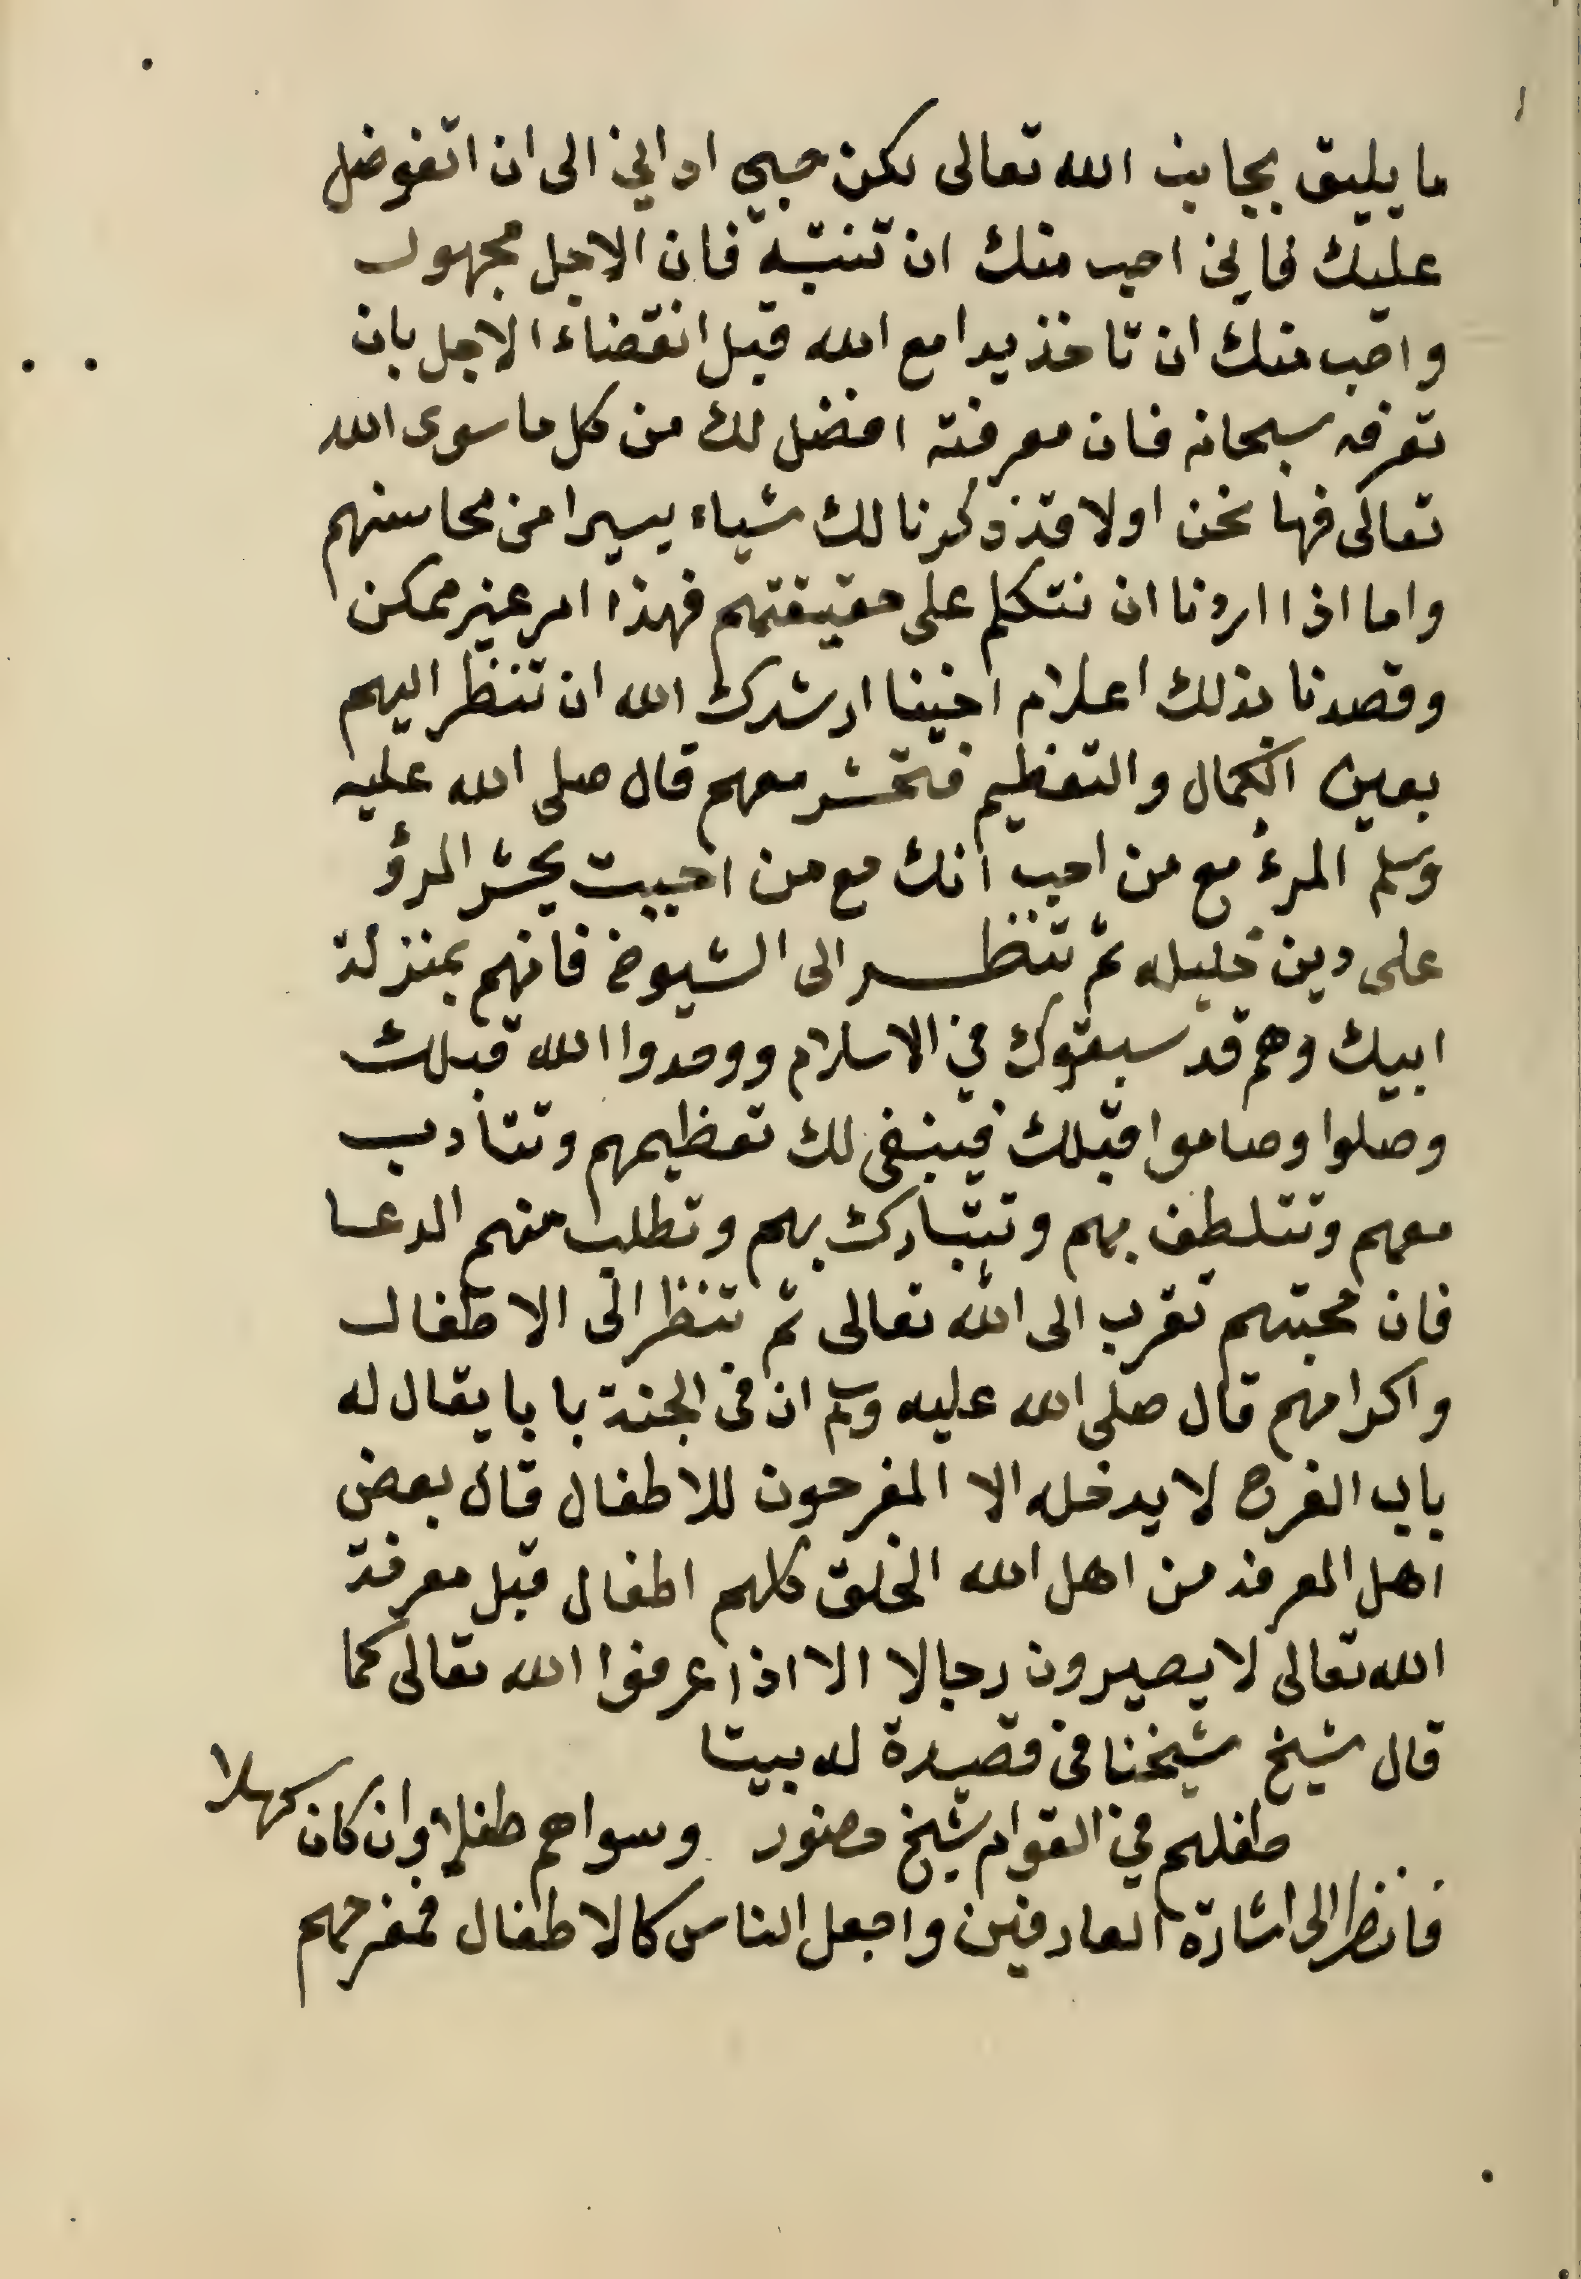 ما يليق بجانب الله تعالى لكن حبي اداني الى ان اتفوضل
عليك فاني احب منك ان تنتبه فان الاجل مجهول
واحب منك ان تاخذ يدا مع الله قبل انقضاء الاجل بان
تعرفه سبحانه فان معرفته افضل لك من كل ما سوى الله
تعالى فها نحن اولا قد ذكرنا لك شياء يسيرا من محاسنهم
واما اذا اردنا ان نتكلم على حقيقتهم فهذا امر غير ممكن
وقصدنا بذلك اعلام اخينا ارشدك الله ان تنظر اليهم
بعين الكمال والتعظيم فتحشر معهم قال صلى الله عليه
وسلم المرء مع من احب انك مع من احببت يحشر المرؤ
على دين خليله ثم تنظر الى الشيوخ فانهم بمنزلة
ابيك وهم قد سبقوك في الاسلام ووحدوا الله قبلك
وصلوا وصاموا قبلك فينبغى لك تعظيمهم وتتأدب
معهم وتتلطف بهم وتتبارك بهم وتطلب منهم الدعا
فان محبتهم تقرب الى الله تعالى ثم تنظر الى الاطفال
واكرامهم قال صلى الله عليه وسلم ان فى الجنة بابا يقال له
باب الفرح لا يدخله الا المفرحون للاطفال قال بعض
اهل المعرفة من اهل الله الخلق كلهم اطفال قبل معرفة
الله تعالى لا يصيرون رجالا الا اذا عرفوا الله تعالى كما
قال شيخ شيخنا فى قصيدة له بيتا
طفلهم في القوام شيخ وسواهم طفلا وان كان كهلا
فانظر الى اشارة العارفين واجعل الناس كالاطفال فمفرحهم